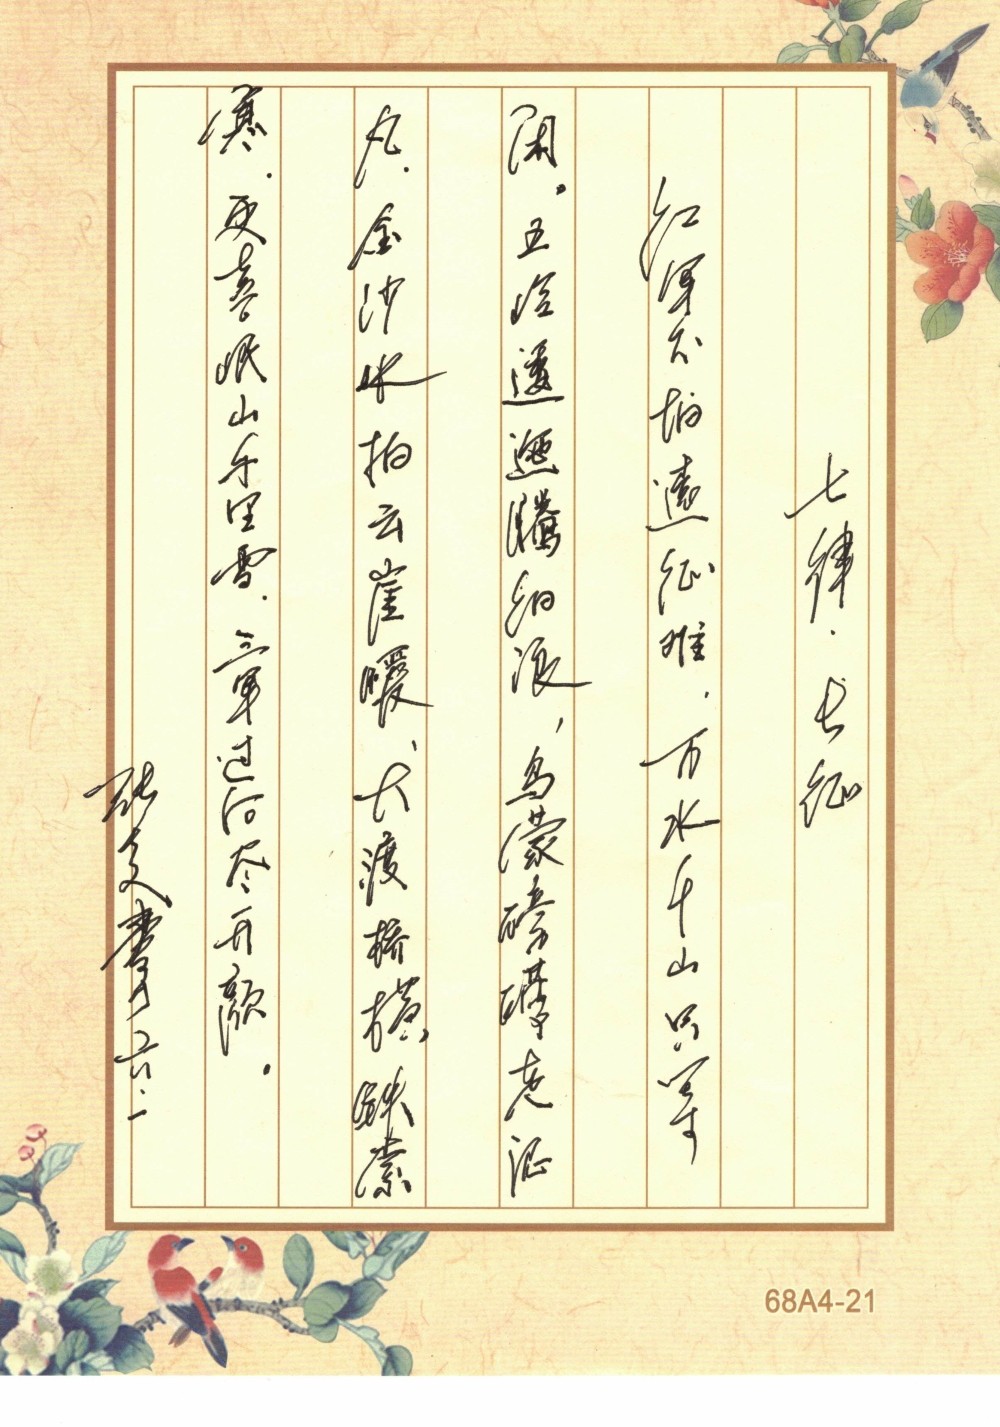 七律·长征
红军不怕遠征难,万水千山只等
闲。五岭逶迤騰细浪,乌蒙磅礴走泥
丸.金沙水拍云崖暖、大渡桥横铁索
寒.更喜岷山千里雪.三军过后尽开颜。
张文書 二六.一
68A4-21